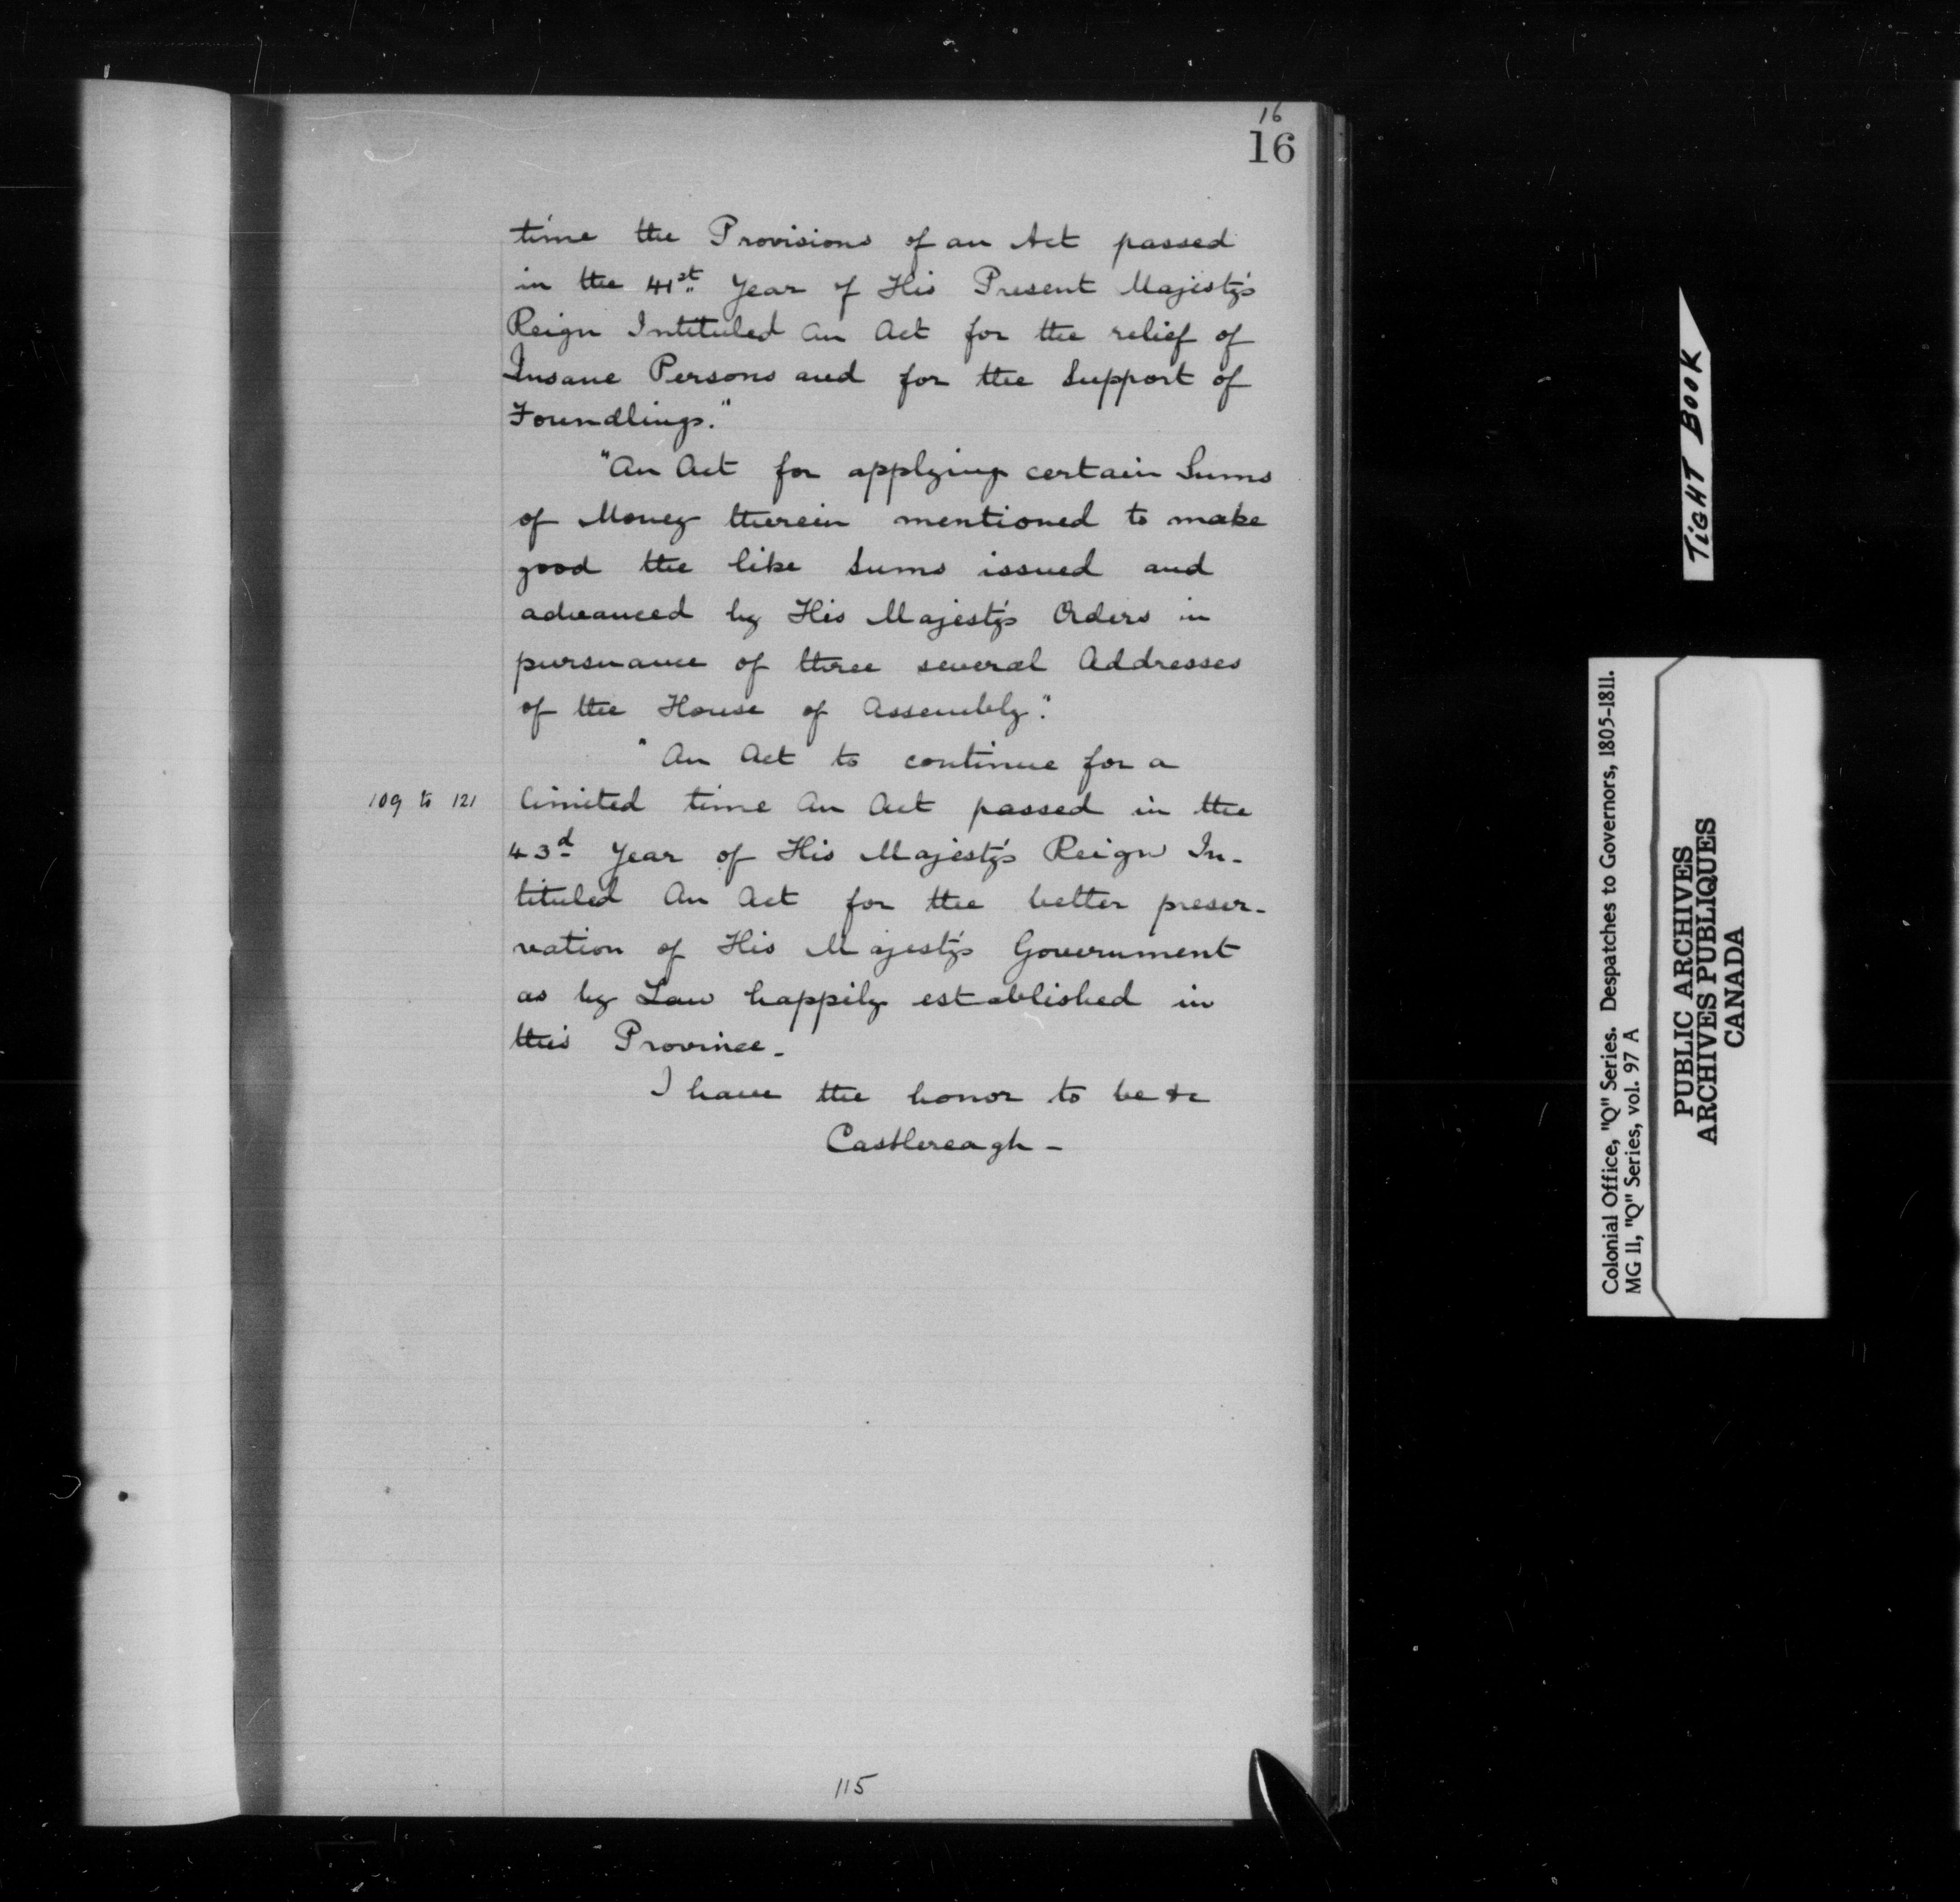 16
16
time the Provisions of an Act passed
in the 41st Year of His Present Majesty's
Reign Intituled An Act for the relief of
Insane Persons and for the Support of
Foundlings."
"An Act for applying certain Sums
of Money therein mentioned to make
good the like Sums issued and
advanced by His Majesty's Orders in
pursuance of three several Addresses
of the House of Assembly."
"An Act to continue for a
109 to 121
limited time An Act passed in the
43d Year of His Majesty's Reign In-
tituled An Act for the better preser-
vation of His Majesty's Government
as by Law happily established in
this Province-
I have the honor to be &c
Castlereagh-
115
TIGHT BOOK
Colonial Office, "Q" Series. Despatches to Governors, 1805-1811.
MG 11, "Q" Series, vol. 97 A
PUBLIC ARCHIVES
ARCHIVES PUBLIQUES
CANADA